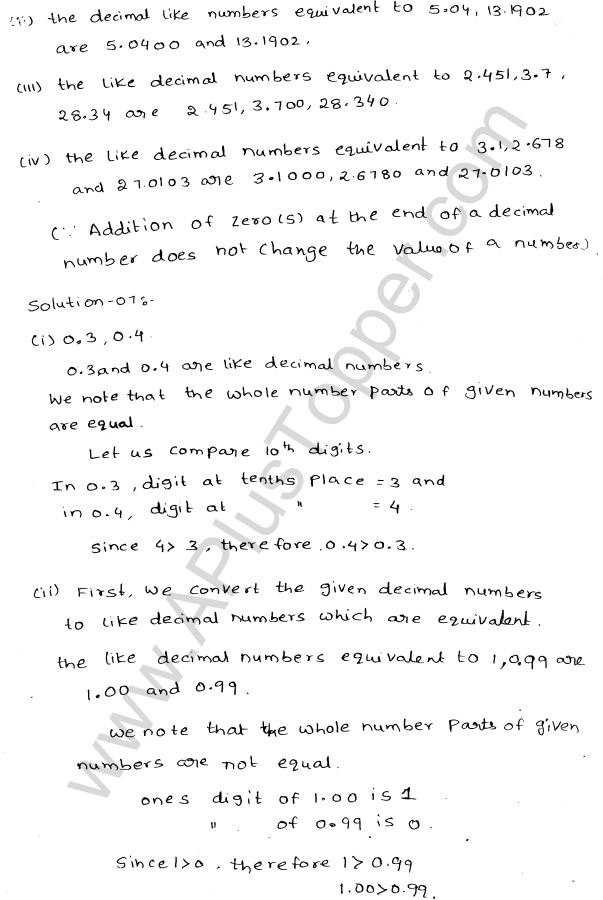 (ii) the decimal like numbers equivalent to 5.04, 13.1902
are 5.0400 and 13.1902.
(iii) the like decimal numbers equivalent to 2.451, 3.7,
28.34 are 2.451, 3.700, 28.340.
(iv) the like decimal numbers equivalent to 3.1, 2.678
and 27.0103 are 3.1000, 2.6780 and 27.0103.
(∵ Addition of zero(s) at the end of a decimal
number does not change the value of a number.)
Solution-07:-
(i) 0.3, 0.4
0.3 and 0.4 are like decimal numbers.
We note that the whole number parts of given numbers
are equal.
Let us compare 10th digits.
In 0.3, digit at tenths place = 3 and
in 0.4, digit at " = 4.
since 4 > 3, therefore 0.4 > 0.3.
(ii) First, we convert the given decimal numbers
to like decimal numbers which are equivalent.
the like decimal numbers equivalent to 1, 0.99 are
1.00 and 0.99.
we note that the whole number parts of given
numbers are not equal.
ones digit of 1.00 is 1
" of 0.99 is 0.
Since 1 > 0, therefore 1 > 0.99
1.00 > 0.99.
www.APlusTopper.com